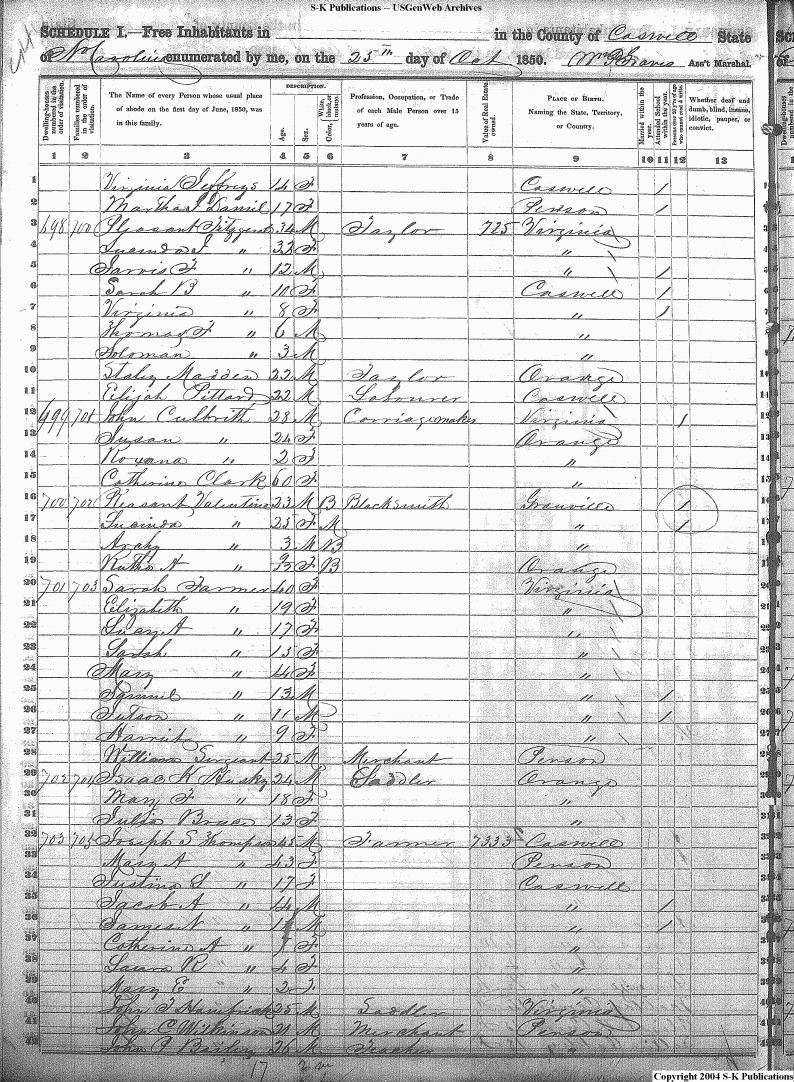 S-K Publications -- USGenWeb Archives
SCHEDULE I.—Free Inhabitants in in the County of Caswell State
of No Carolina enumerated by me, on the 25th day of Oct 1850. Wm Graves Ass't Marshal.
Dwelling-houses numbered in the order of visitation.
Families numbered in the order of visitation.
The Name of every Person whose usual place of abode on the first day of June, 1850, was in this family.
DESCRIPTION.
Age.
Sex.
Color, White, black, or mulatto.
Profession, Occupation, or Trade of each Male Person over 15 years of age.
Value of Real Estate owned.
PLACE OF BIRTH. Naming the State, Territory, or Country.
Married within the year.
Attended School within the year.
Persons over 20 y'rs of age who cannot read & write.
Whether deaf and dumb, blind, insane, idiotic, pauper, or convict.
1 2 3 4 5 6 7 8 9 10 11 12 13
1 Virginia Jeffreys 14 F Caswell / 1
2 Martha J Daniel 17 F Person / 2
3 698 700 Pleasant 34 M Taylor 725 Virginia 3
4 Lucinda J " 32 F " 4
5 Jarvis F " 12 M " / 5
6 Sarah B " 10 F Caswell / 6
7 Virginia " 8 F " / 7
8 Thomas F " 6 M " 8
9 Soloman " 3 M " 9
10 Staley Madden 22 M Taylor Orange 10
11 Elijah Pittard 22 M Labourer Caswell 11
12 699 701 John Culbrith 28 M Carriage maker Virginia 1 12
13 Susan " 24 F Orange 13
14 Roxana " 2 F " 14
15 Catherine Clark 60 F " 15
16 700 702 Pleasant Valentine 23 M B Blacksmith Granville 1 16
17 Lucinda " 25 F M " 1 17
18 Archy " 3 M B " 18
19 Ruthe A " F B Orange 19
20 701 703 Sarah Farmer 40 F Virginia 20
21 Elizabeth " 19 F " 21
22 Lucy A " 17 F " 22
23 Sarah " 15 F " 23
24 Mary " 14 F " 24
25 Samuel " 13 M " / 25
26 Judson " 11 M " / 26
27 Harriet " 9 F " 27
28 William Sergeant 25 M Merchant Person 28
29 702 704 Isaac H Husky 24 M Saddler Orange 29
30 Mary F " 18 F " 30
31 Julia Bruce 13 F " 31
32 703 705 Joseph S Thompson 45 M Farmer 7333 Caswell 32
33 Mary A " 43 F Person 33
34 Justina S " 17 F Caswell 34
35 Jacob A " 14 M " / 35
36 James N " M " / 36
37 Catherine A " 7 F " 37
38 Laura R " 4 F " 38
39 Mary E " 2 F " 39
40 John F Hambrick 25 M Saddler Virginia 40
41 John C Wilkinson 21 M Merchant Person 41
42 John P Bailey 26 M Teacher " 42
17
Copyright 2004 S-K Publications